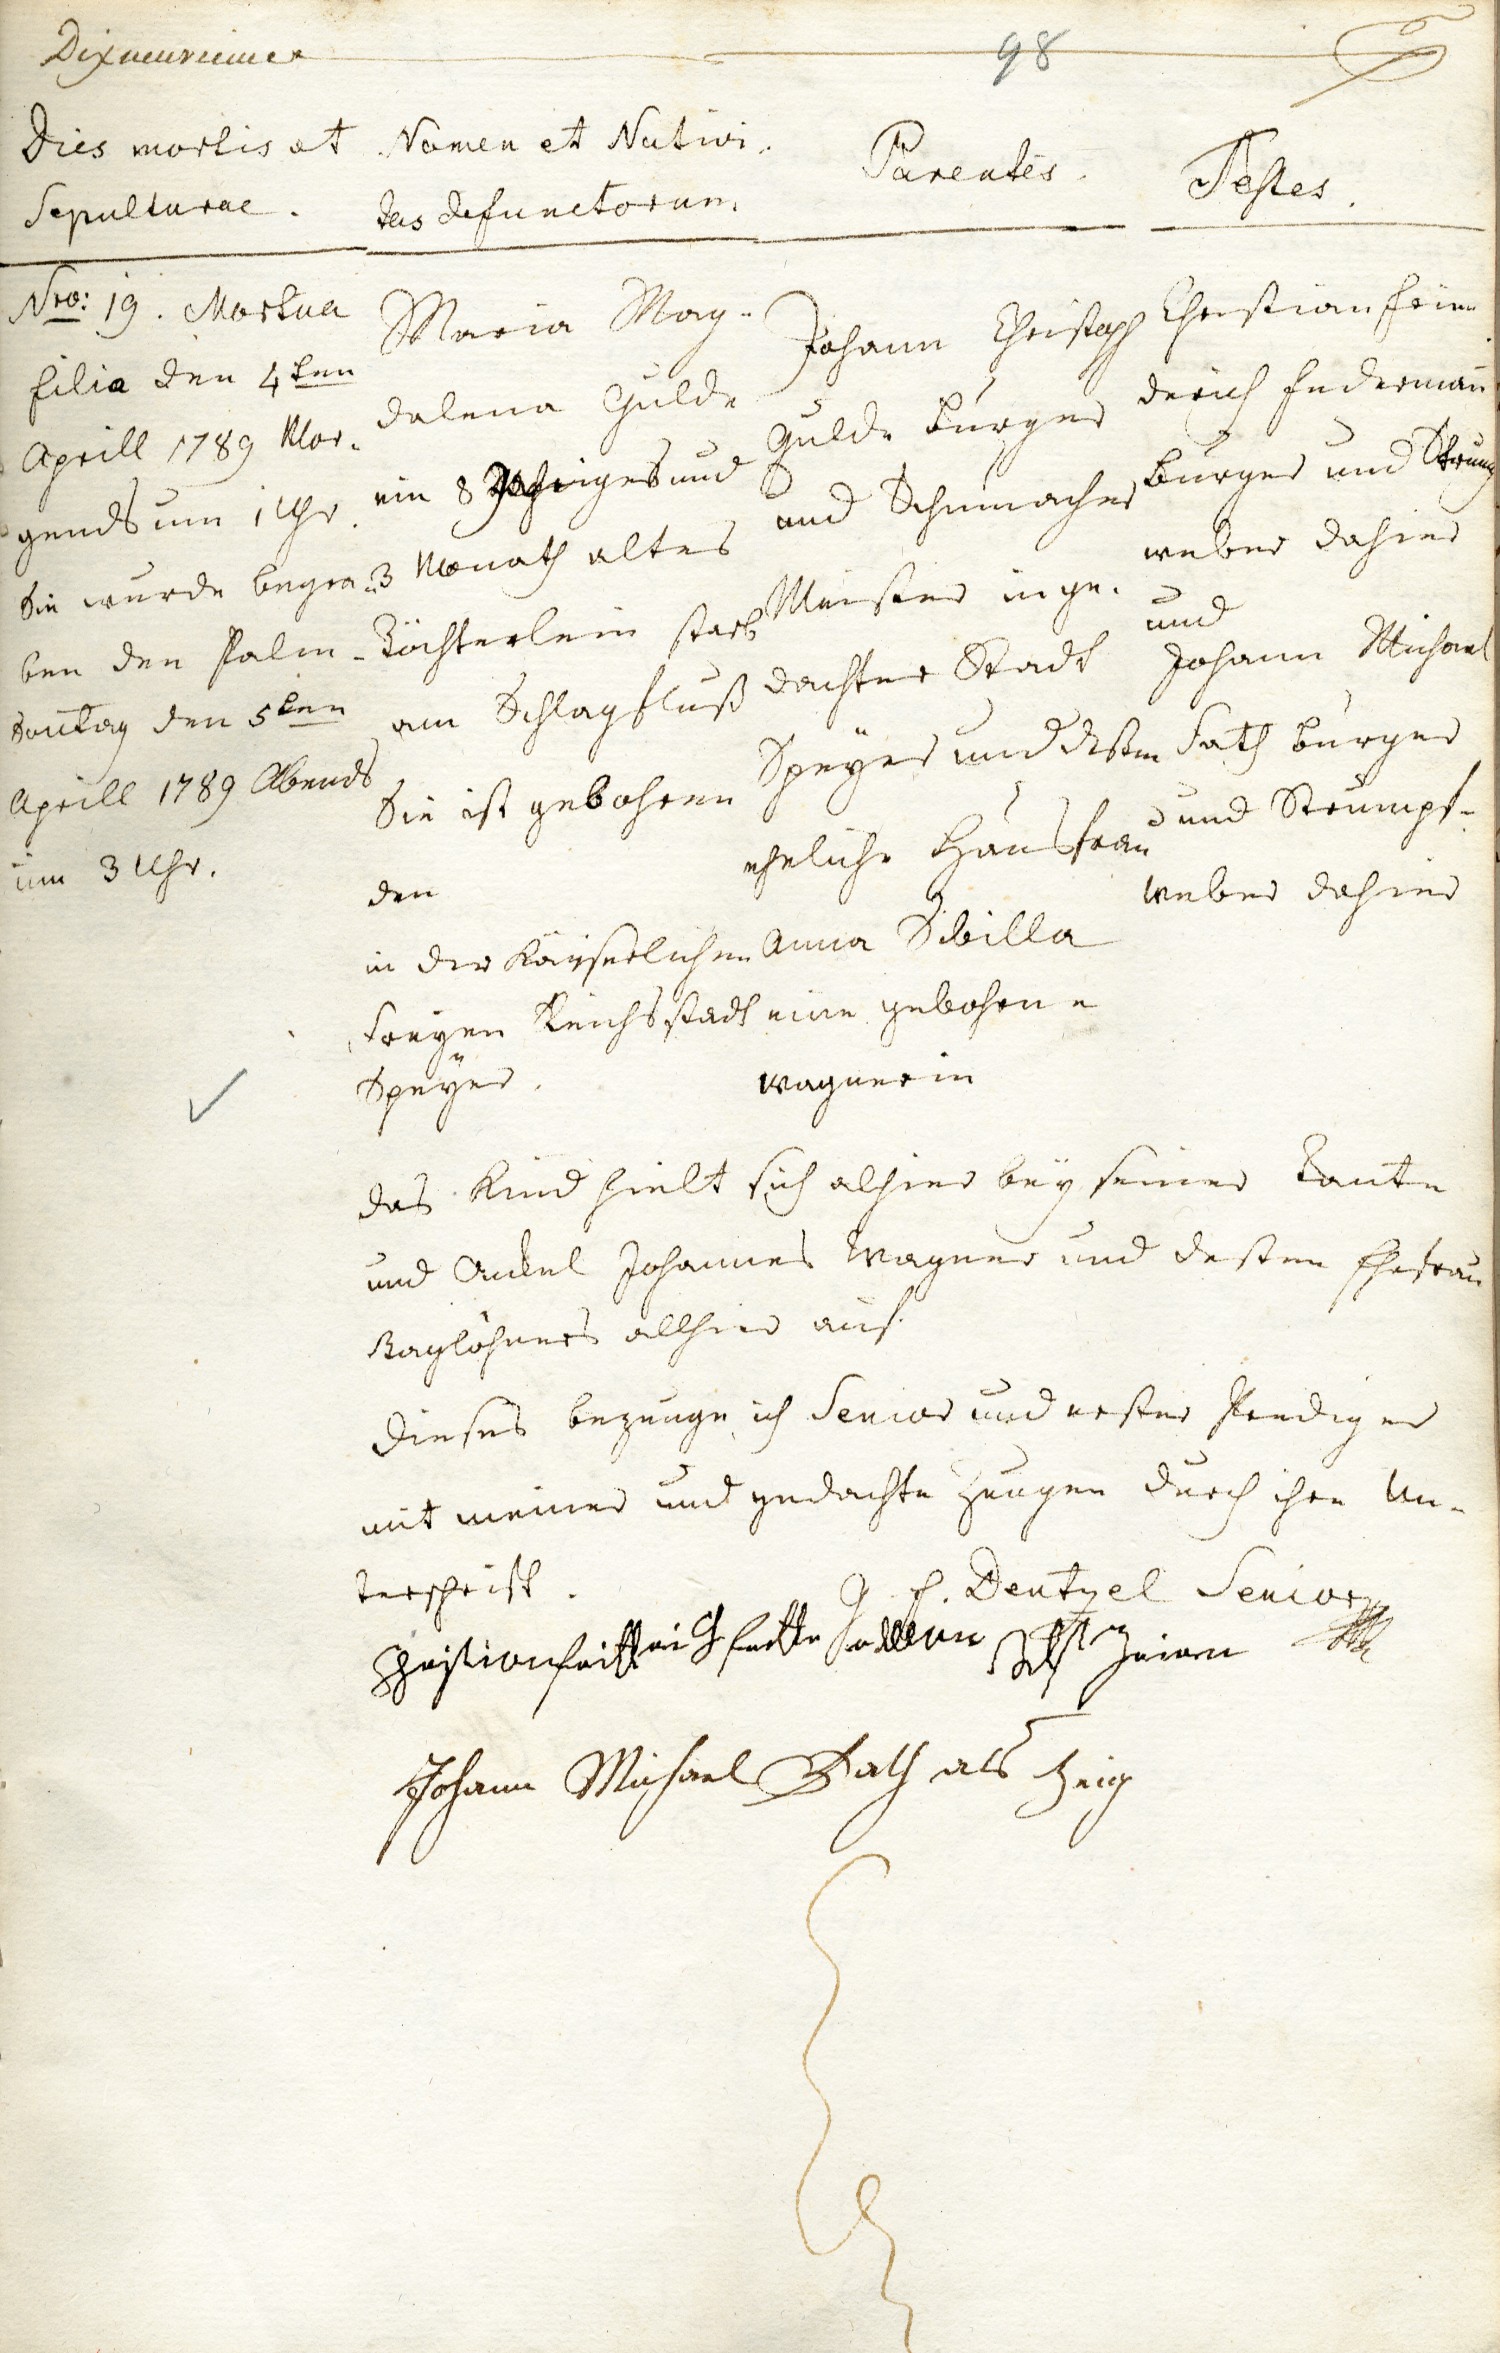 98
Dies mortis et
Sepulturae.
Nomen et Nativi-
tas defunctorum.
Parentes.
Testes.
Nro: 19. Mortua
filia den 4ten
Aprill 1789 Mor-
gends um 1 Uhr.
Sie wurde begra-
ben den Palm-
Sontag den 5ten
Aprill 1789 Abends
um 3 Uhr.
Maria Mag-
dalena Gulde
ein 8 Jähriges und
3 Monath altes
Töchterlein starb
am Schlagfluß
Sie ist gebohren
den
in der Kayserlichen
freyen Reichsstadt
Speyer.
Johann Christoph
Gulde burger
und Schumacher
Meister in ge-
dachter Stadt
Speyer und dessen
eheliche Hausfrau
Anna Sibilla
eine gebohrne
Wagnerin
Christian Frie-
derich Federman
burger und Strumpf
weber dahier
und
Johann Michael
Fath burger
und Strumpf-
weber dahier
das Kind hielt sich alhier bey seiner Tante
und Onkel Johannes Wagner und dessen Ehefrau
Taglöhners allhier auf.
Dieses bezeuge ich Senior und erster Prediger
mit meiner und gedachte Zeugen durch ihre Un-
terschrift.
G. F. Dentzel Senior
Johann Michael Fath als Zeig